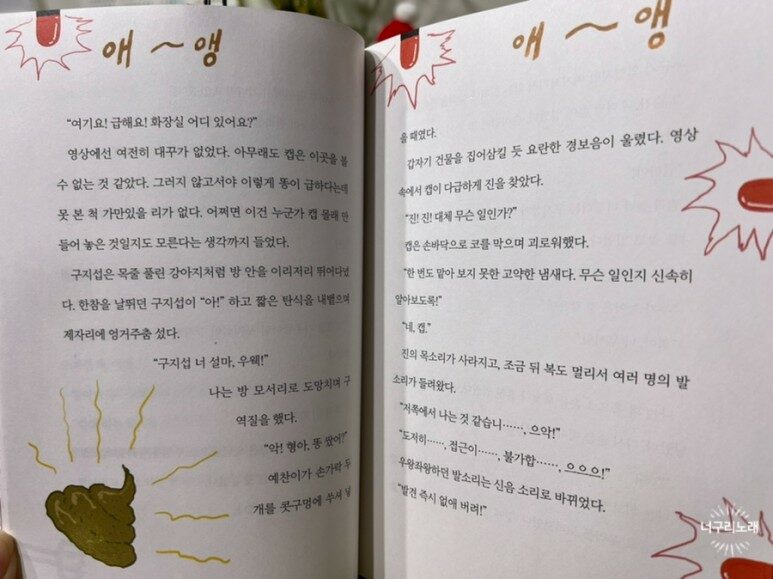 애~앵
"여기요! 급해요! 화장실 어디 있어요?"
영상에선 여전히 대꾸가 없었다. 아무래도 캡은 이곳을 볼
수 없는 것 같았다. 그러지 않고서야 이렇게 똥이 급하다는데
못 본 척 가만있을 리가 없다. 어쩌면 이건 누군가 캡 몰래 만
들어 놓은 것일지도 모른다는 생각까지 들었다.
구지섭은 목줄 풀린 강아지처럼 방 안을 이리저리 뛰어다녔
다. 한참을 날뛰던 구지섭이 "아!" 하고 짧은 탄식을 내뱉으며
제자리에 엉거주춤 섰다.
"구지섭 너 설마, 우웩!"
나는 방 모서리로 도망치며 구
역질을 했다.
"악! 형아, 똥 쌌어?"
예찬이가 손가락 두
개를 콧구멍에 쑤셔 넣
애~앵
을 때였다.
갑자기 건물을 집어삼킬 듯 요란한 경보음이 울렸다. 영상
속에서 캡이 다급하게 진을 찾았다.
"진! 진! 대체 무슨 일인가?"
캡은 손바닥으로 코를 막으며 괴로워했다.
"한 번도 맡아 보지 못한 고약한 냄새다. 무슨 일인지 신속히
알아보도록!"
"네, 캡."
진의 목소리가 사라지고, 조금 뒤 복도 멀리서 여러 명의 발
소리가 들려왔다.
"저쪽에서 나는 것 같습니……, 으악!"
"도저히……, 접근이……, 불가합……, 으으으!"
우왕좌왕하던 발소리는 신음 소리로 바뀌었다.
"발견 즉시 없애 버려!"
너구리노래